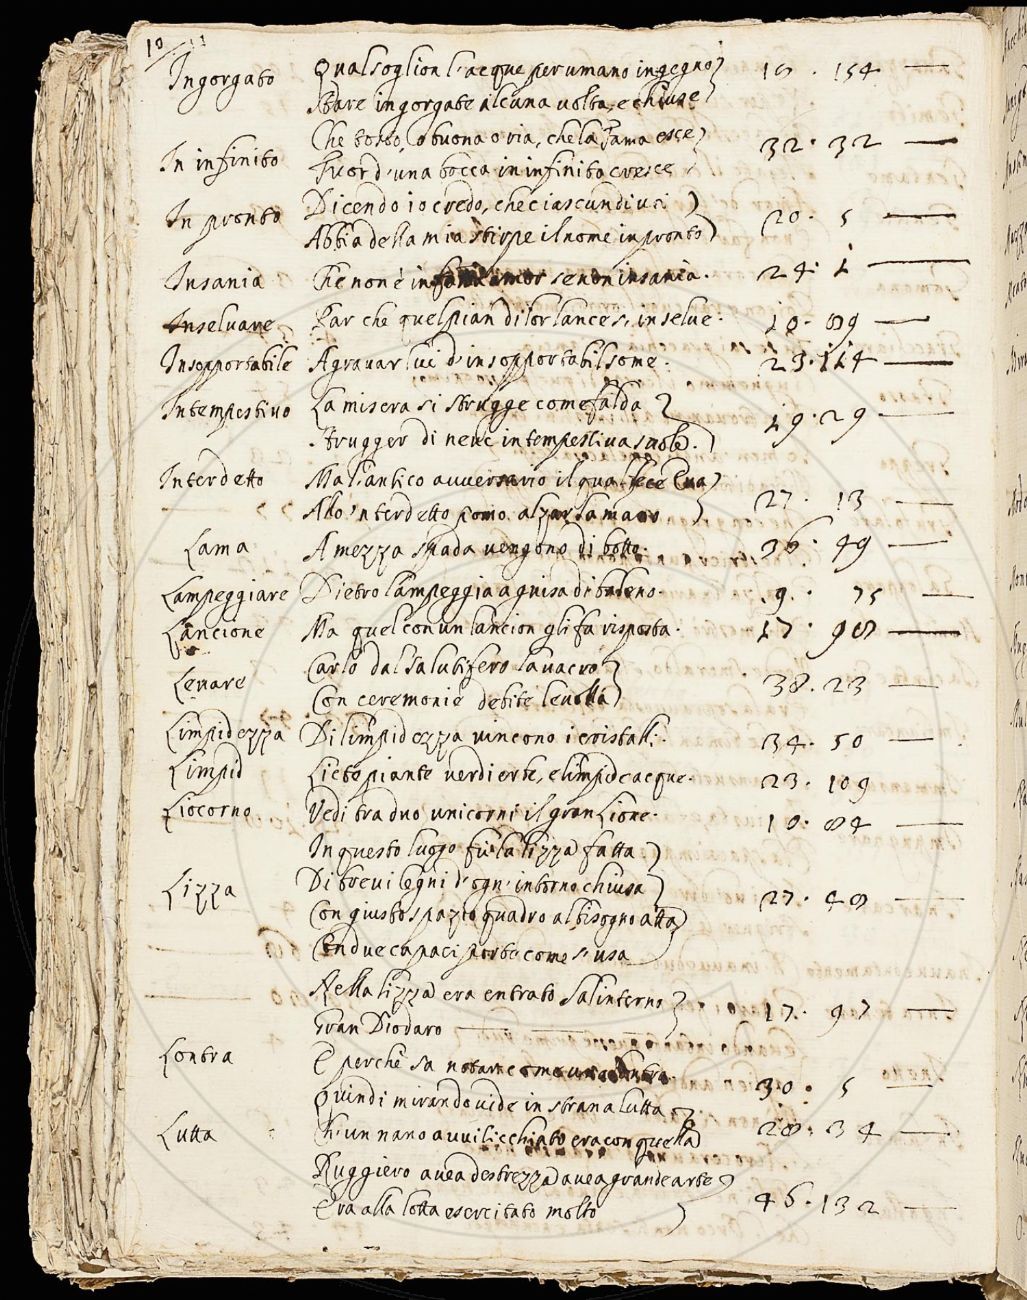 10 11
Ingorgato Qual soglion l'acque per umano ingegno 18 . 154
Stare ingorgate alcuna uolta, e chiuse
In infinito Che tosto, o buona o ria, che la fama esce 32 . 32
Fuor d'una bocca in infinito cresce
In pronto Dicendo io credo, che ciascun di uoi 20 . 5
Abbia della mia stirpe il nome in pronto
Insania Che non è in amor se non insania. 24 . 1
Inseluare Par che quel pian di lor lance s'inselue. 10 . 89
Insopportabile Agravar lui d'insopportabil some. 23 . 114
Intempestiuo La misera si strugge come falda 19 . 29
Strugger di neue intempestiua suole.
Interdetto Ma l'antico auuersario il qual fece Eua 27 . 13
All'interdetto pomo alzar la mano
Lama A mezza spada uengono di botto. 36 . 49
Lampeggiare Dietro lampeggia a guisa di baleno. 9 . 75
Lancione Ma quel con un lancion gli fa risposta. 17 . 98
Leuare Carlo dal salutifero lauacro 38 . 23
Con ceremonie debite leuolla
Limpidezza Di limpidezza uincono i cristalli. 34 . 50
Limpid Liete piante uerdi erbe, e limpide acque. 23 . 109
Liocorno Vedi tra duo unicorni il gran Lione. 10 . 84
In questo luogo fu la lizza fatta
Lizza Di breui legni d'ogn'intorno chiusa 27 . 48
Con giusto spazio quadro al bisogno atta
Con due capaci porte come s'usa
Nella lizza era entrato Salinterno 17 . 97
Gran Diodaro
Lontra E perchè sa notar come una lontra 30 . 5
Quindi mirando uide in strana lutta
Lutta Ch'un nano auuiticchiato era con quella 28 . 34
Ruggiero auea destrezza auea grande arte
Era alla lotta esercitato molto 46 . 132